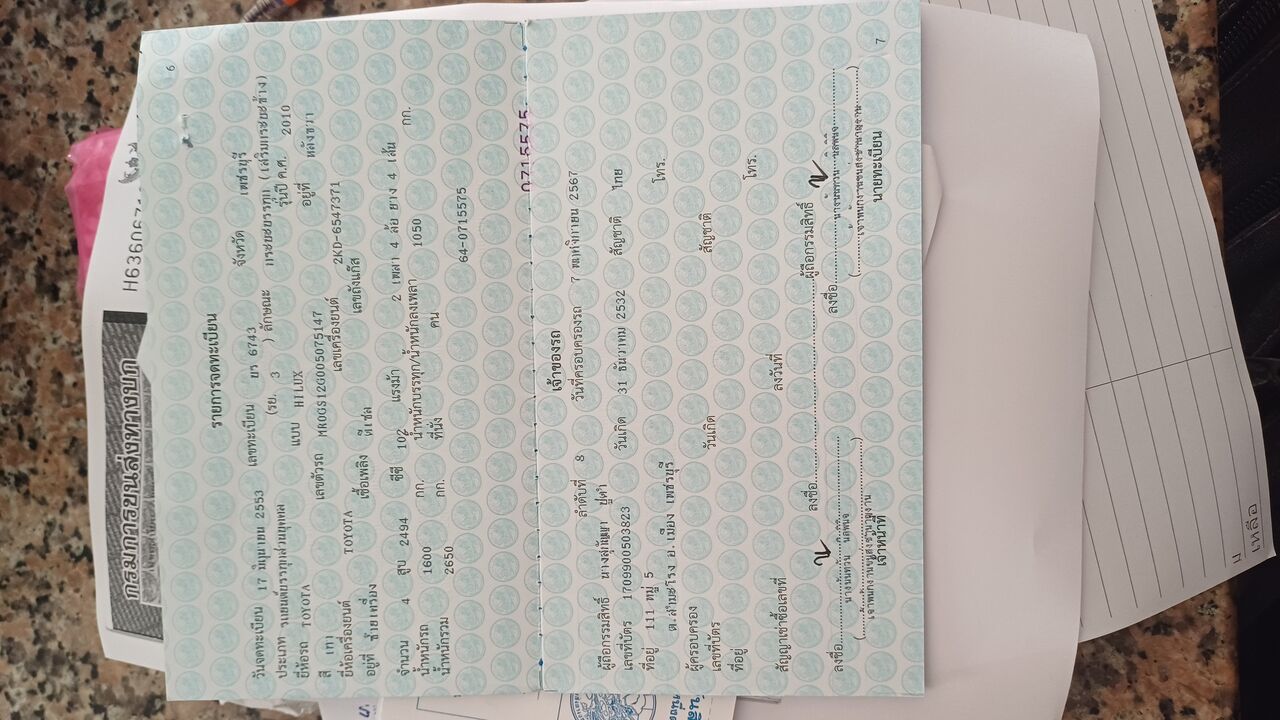 กรมการขนส่งทางบก
6
รายการจดทะเบียน
วันจดทะเบียน 17 มิถุนายน 2553 เลขทะเบียน ยร 6743 จังหวัด เพชรบุรี
ประเภท รถยนต์บรรทุกส่วนบุคคล (รย. 3 ) ลักษณะ กระบะบรรทุก (เสริมกระบะข้าง)
ยี่ห้อรถ TOYOTA แบบ HILUX รุ่นปี ค.ศ. 2010
สี เทา เลขตัวรถ MR0GS12G005075147 อยู่ที่ หลังขวา
ยี่ห้อเครื่องยนต์ TOYOTA เลขเครื่องยนต์ 2KD-6547371
อยู่ที่ ซ้ายเครื่อง เชื้อเพลิง ดีเซล เลขถังแก๊ส
จำนวน 4 สูบ 2494 ซีซี 102 แรงม้า 2 เพลา 4 ล้อ ยาง 4 เส้น
น้ำหนักรถ 1600 กก. น้ำหนักบรรทุก/น้ำหนักลงเพลา 1050 กก.
น้ำหนักรวม 2650 กก. ที่นั่ง คน
64-0715575
0715575
เจ้าของรถ
ลำดับที่ 8 วันที่ครอบครองรถ 7 พฤศจิกายน 2567
ผู้ถือกรรมสิทธิ์
เลขที่บัตร 1709900503823 วันเกิด 31 ธันวาคม 2532 สัญชาติ ไทย
ที่อยู่ 111 หมู่ 5
ต.สำมะโรง อ.เมือง เพชรบุรี โทร.
ผู้ครอบครอง
เลขที่บัตร วันเกิด สัญชาติ
ที่อยู่
โทร.
สัญญาเช่าซื้อเลขที่ ลงวันที่
ลงชื่อ ผู้ถือกรรมสิทธิ์
ลงชื่อ ลงชื่อ
เจ้าหน้าที่ นายทะเบียน
7
เหลือ